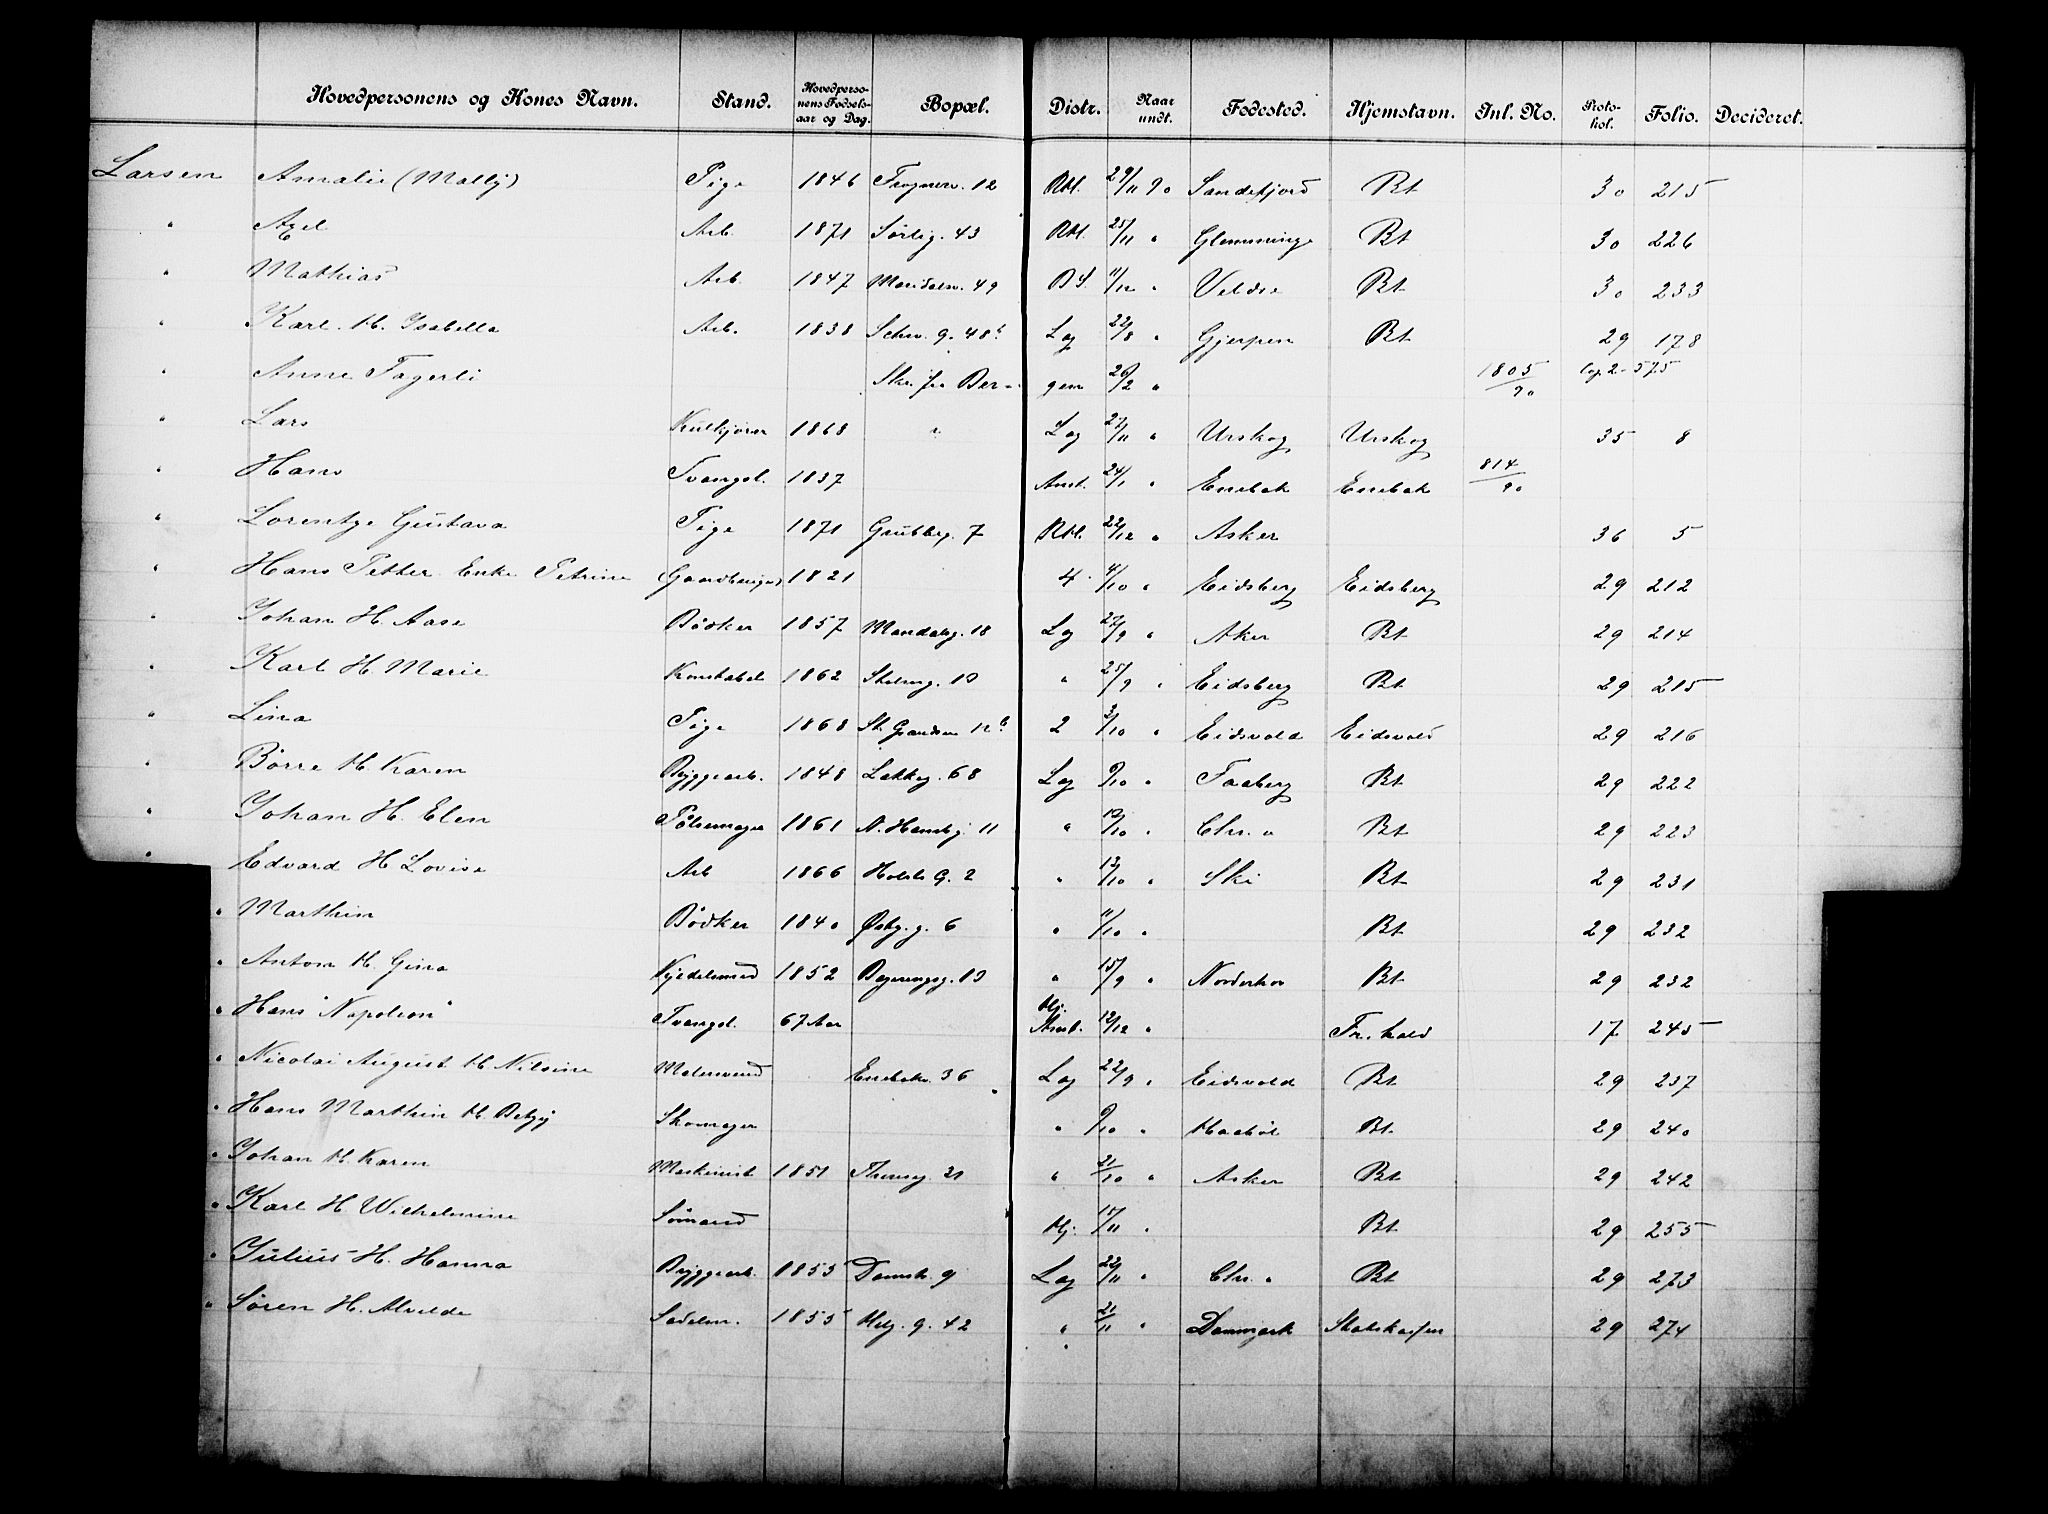 Hovedpersonens og Kones Navn. Stand. Hovedpersonens Fødselsaar og Dag. Bopæl. Distr. Naar undt. Fødested. Hjemstavn. Inl. No. Protokol. Folio. Decideret.
Larsen Amalie (Mally) Pige 1846 Frognerv. 12 Rkl. 29/11 90 Sandefjord Bt 30 215
" Axel Arb. 1871 Sørlig. 43 Rkl. 25/11 " Glemminge Bt 30 226
" Mathias Arb. 1847 Maridalsv. 49 11/12 " Veldre Bt 30 233
" Karl. H. Isabella Arb. 1838 Schw. g. 48b Lag 22/8 " Gjerpen Bt 29 178
" Anne Fagerli Skr. fra Ber- gen 26/2 " 1805/90 Cop. 2 - 575
" Lars Kulkjører 1868 " Lag 27/11 " Urskog Urskog 35 8
" Hans Tvangsl. 1837 Anst. 24/1 " Enebak Enebak 814/90
" Lorentze Gustava Pige 1871 Grubbeg. 7 Rkl. 22/12 " Asker 36 5
" Hans Petter Enke Petrine (Gaardbruger) 1821 4 4/10 " Eidsberg Eidsberg 29 212
" Johan H. Aase Bødker 1857 Mandalsg. 18 Lag 27/9 " Aker Bt 29 214
" Karl H. Marie Konstabel 1862 10 " 25/9 " Eidsberg Bt 29 215
" Lina Pige 1868 St. Grandsen 12b 2 2/10 " Eidsvold Eidsvold 29 216
" Børre H. Karen Bryggearb. 1848 Lakkeg. 68 Lag 9/10 " Faaberg Bt 29 222
" Johan H. Elen Pølsemager 1861 N. Hamb.g. 11 " 10/10 " Chr. a Bt 29 223
" Edvard H. Lovise Arb 1866 Holsts G. 2 " 13/10 " Ski Bt 29 231
" Marthin Bødker 1840 Østg. g. 6 " 11/10 " Bt 29 232
" Anton H. Gina Kjedelsmed 1852 10 " 15/9 " Norderhov Bt 29 232
" Hans "Napoleon" Tvangsl. 67 Aar Hj. Anst. 12/12 " Fr. hald 17 245
" Nicolai August H. Nilsine Malersvend Enebakv. 36 Lag 22/9 " Eidsvold Bt 29 237
" Hans Marthin H. Betzy Skomager " 9/10 " Haabøl Bt. 29 240
" Johan H. Karen Maskinist 1851 Thorvg 21 " 21/10 " Asker Bt 29 242
" Karl H. Wilhelmine Sømand Hj. 17/11 " Bt 29 255
" Julius H. Hanna Bryggearb. 1855 Damstr. 9 Lag 22/11 " Chr. a Bt 29 273
" Søren H. Alvilde Sadelm. 1855 Helg. g. 42 " 21/11 " Danmark Statskassen 29 274